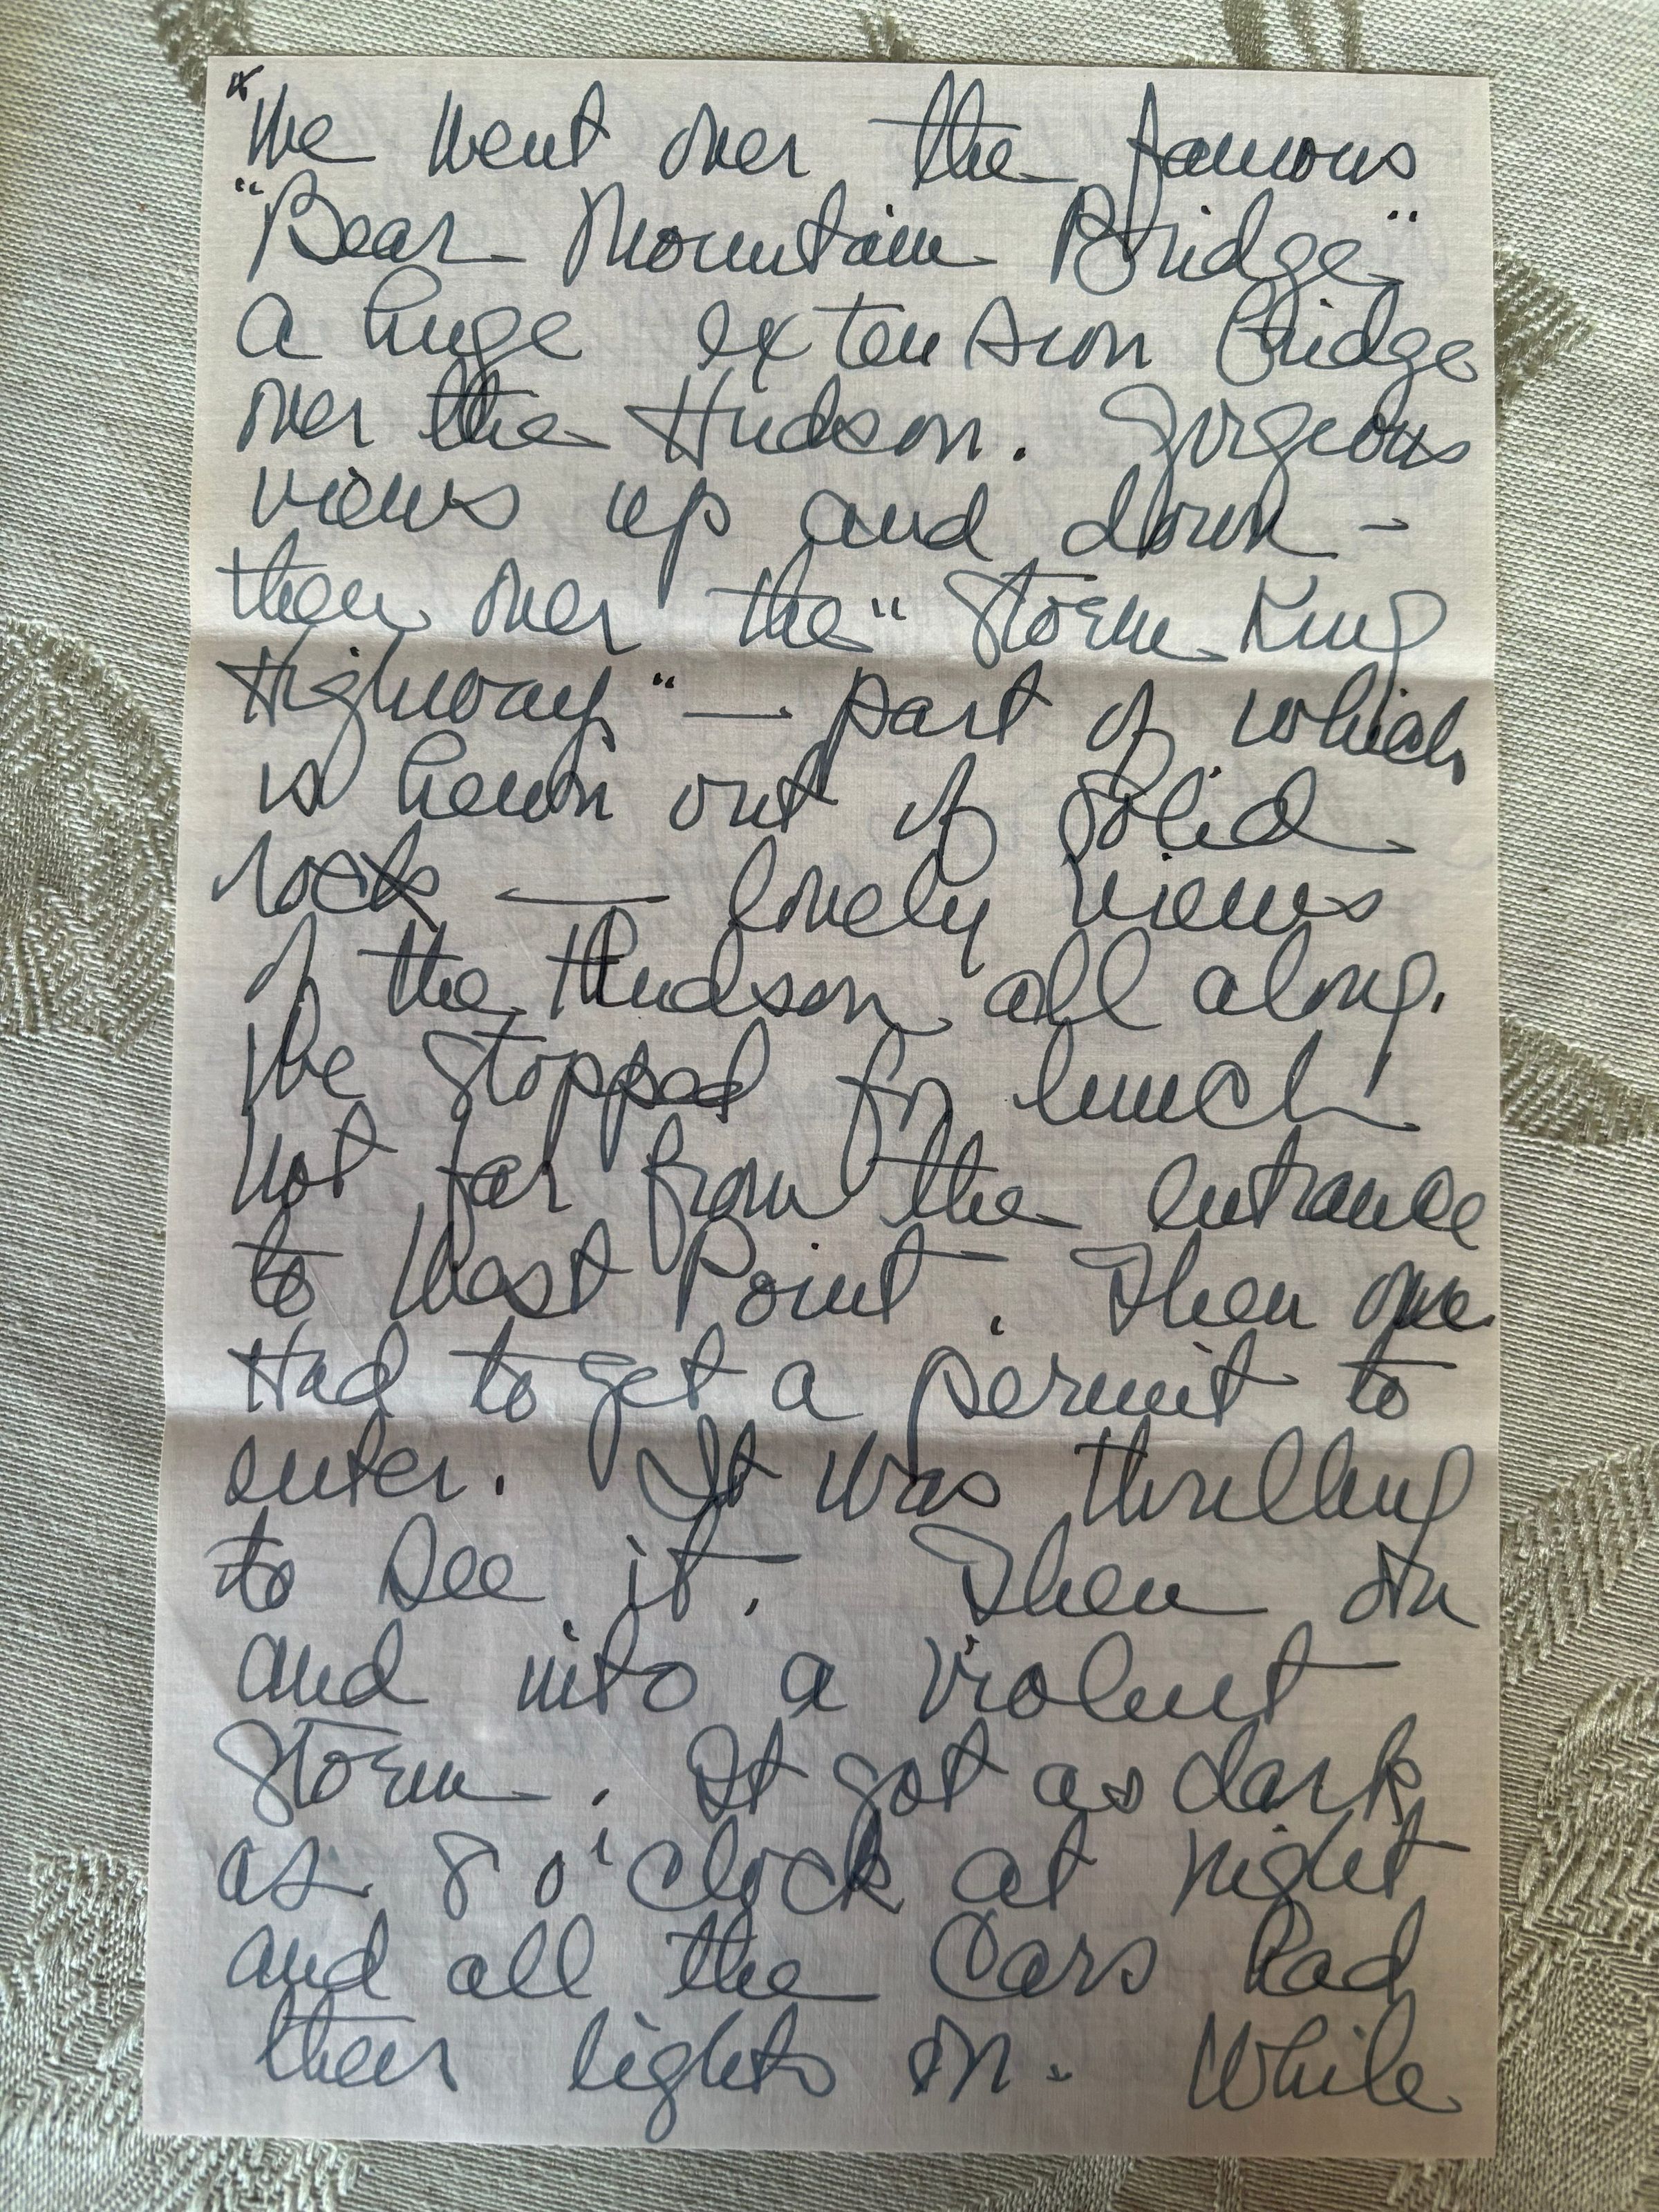 We went over the famous
"Bear Mountain Bridge"
a huge extension bridge
over the Hudson. Gorgeous
views up and down -
then over the "Storm King
Highway" — part of which
is hewn out of solid
rock — lovely views
of the Hudson all along.
We stopped for lunch
not far from the entrance
to West Point. Then one
Had to get a permit to
enter. It was thrilling
to see it. Then on
and into a violent
storm. It got as dark
as 8 o'clock at night
and all the cars had
their lights on. While